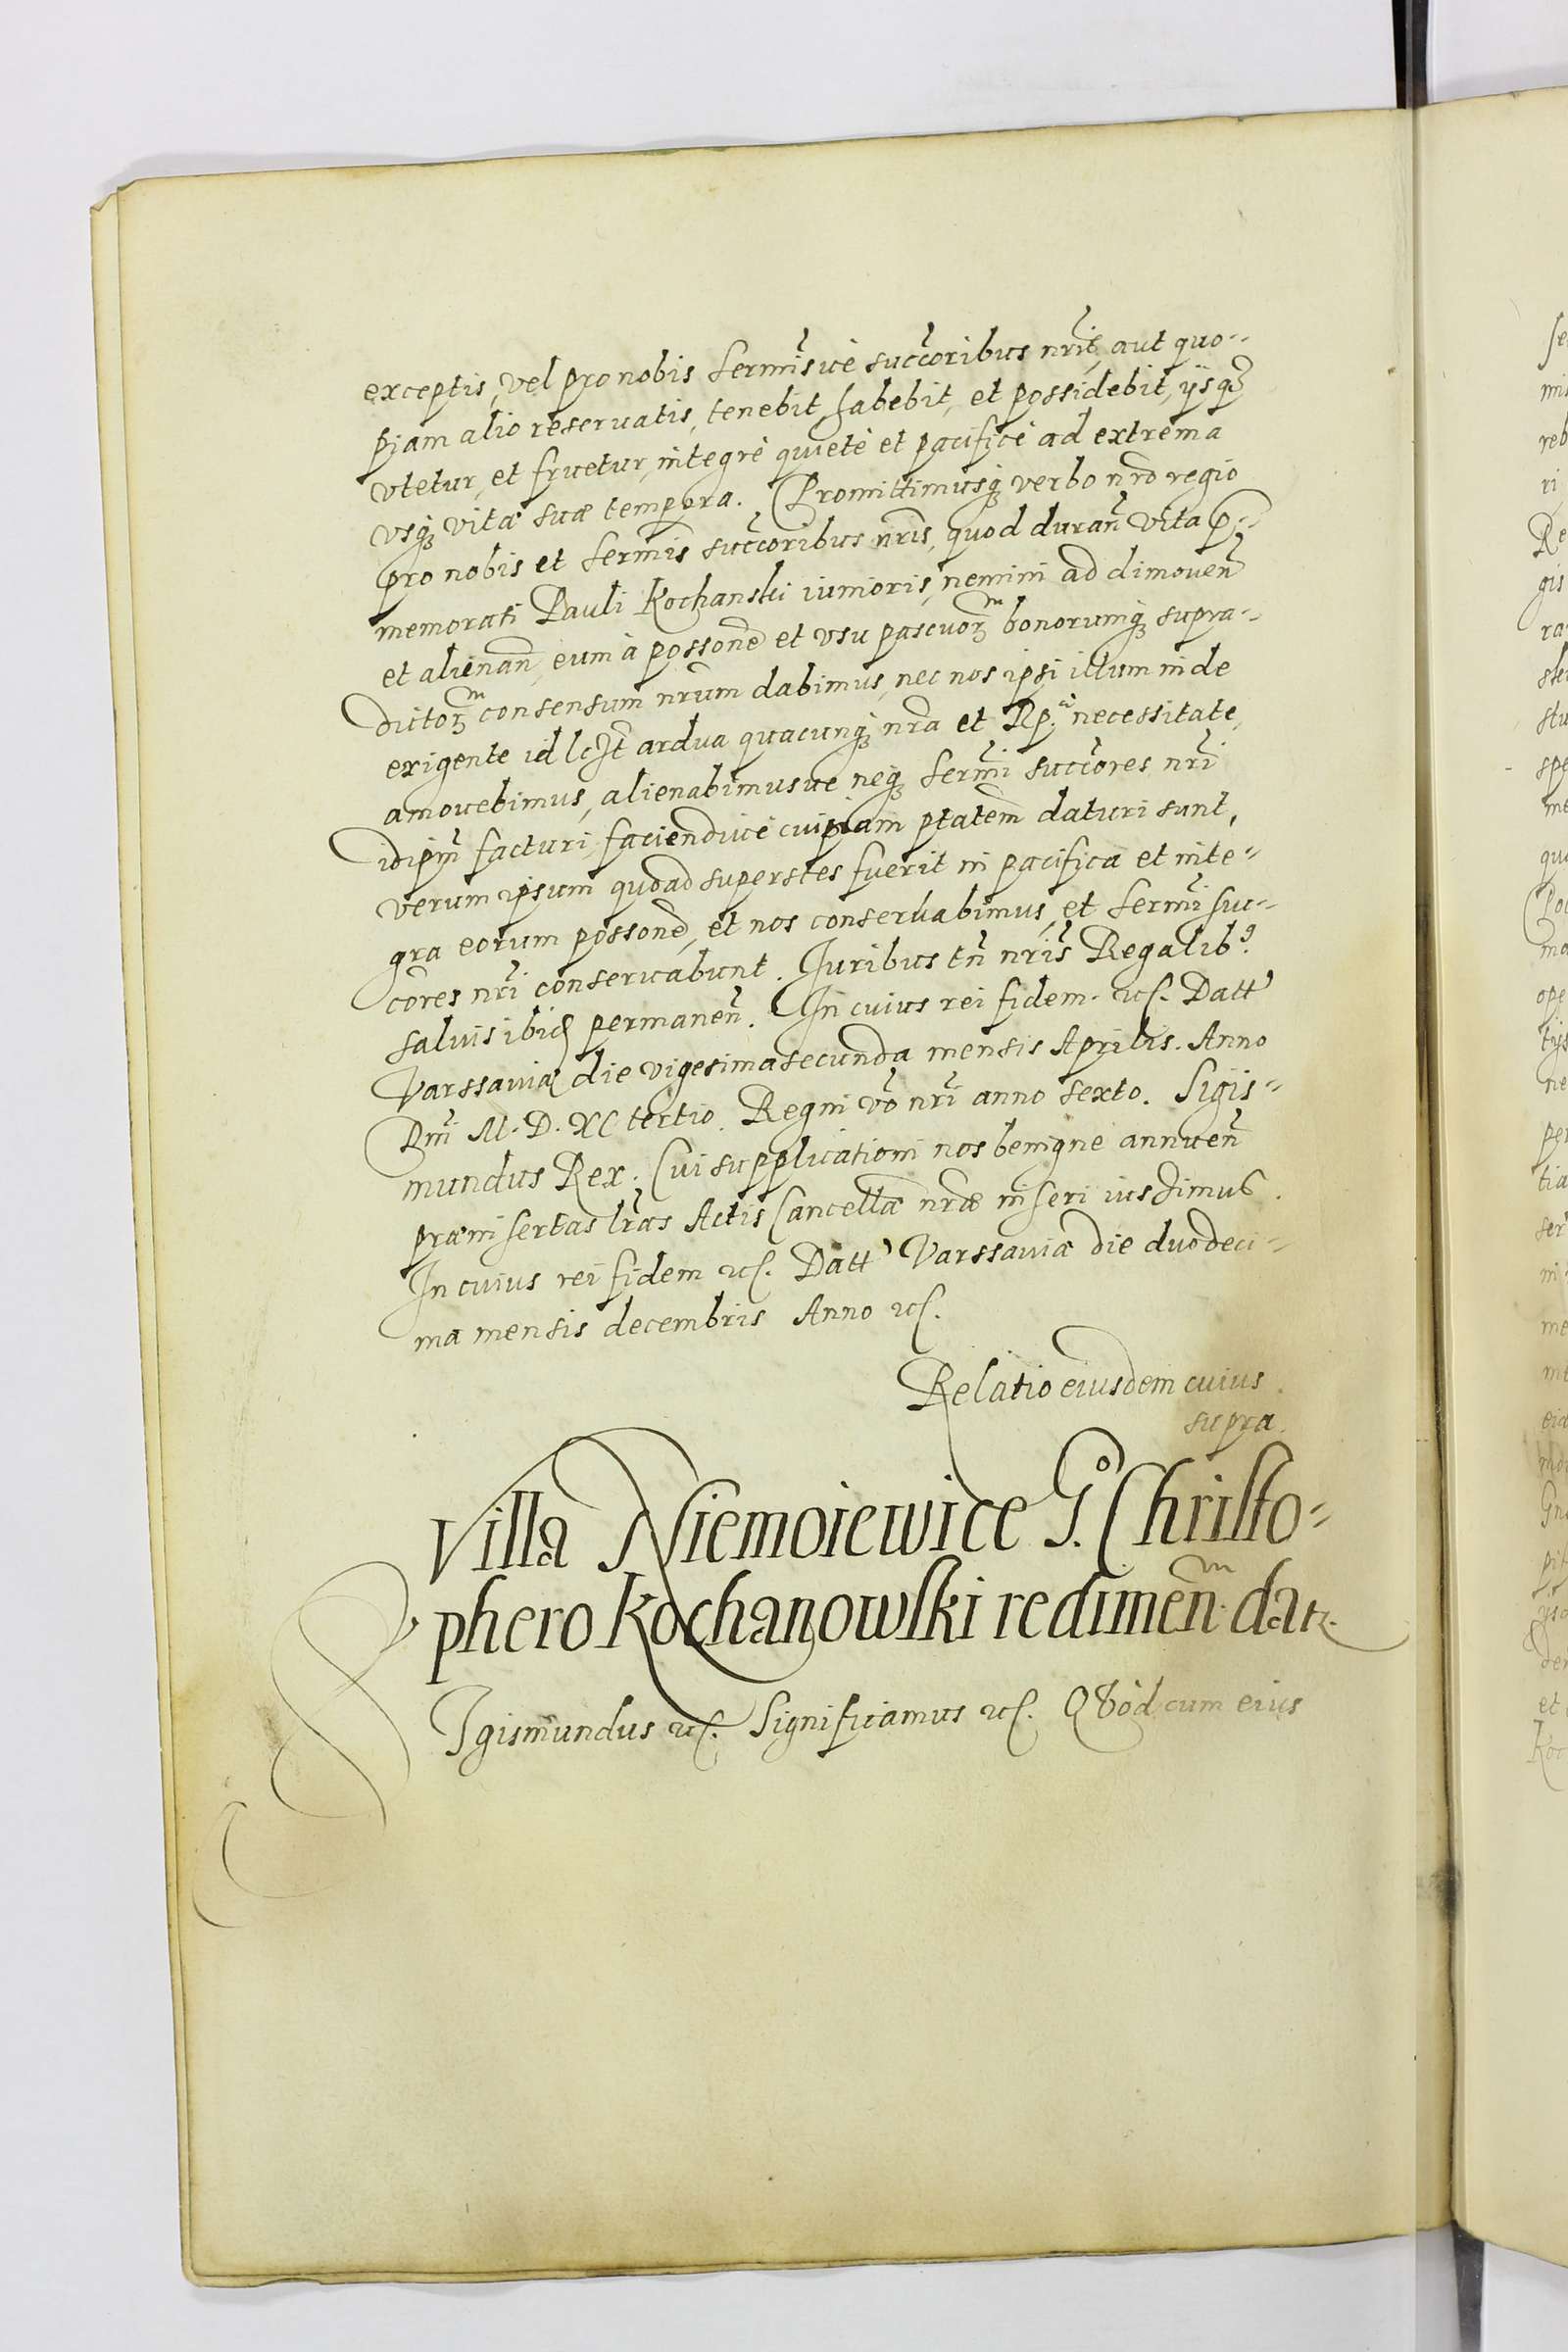 exceptis, vel pro nobis Sermisve succoribus nris, aut quo-
piam alio reseruatis, tenebit, habebit, et possidebit, ijsq3
vtetur, et fruetur, integrè quietè et pacificè ad extrema
vsq3 vitæ suæ tempora. Promittimusq3 verbo nro regio
pro nobis et Sermis succoribus nris, quod duran vita p-
memorati Pauli Kochanski iunioris, nemini ad dimouen
et alienan, eum à possone et vsu pascuor bonorumq3 supra-
dictor consensum nrum dabimus, nec nos ipsi illum inde
exigente id lcet ardua quacunq3 nra et Rp. necessitate,
amouebimus, alienabimusue neq3 Sermi succores nri
idipm facturi, faciendiue cuipiam ptatem daturi sunt,
verum ipsum quoad superstes fuerit in pacifica et inte-
gra eorum possone, et nos conseruabimus, et Sermi suc-
cores nri conseruabunt. Iuribus tn nris Regalib9
saluis ibid permanen. In cuius rei fidem. etc. Datt
Varssauiæ die vigesima secunda mensis Aprilis. Anno
Dni M. D. XC tertio. Regni vo nri anno sexto. Sigis-
mundus Rex. Cui supplicationi nos benigne annuen
præinsertas lras Actis Cancellæ nræ inseri iussimus.
In cuius rei fidem etc. Datt Varssauiæ die duodeci-
ma mensis decembris Anno etc.
Relatio eiusdem cuius
supra.
Villa Niemoiewice G. Christo-
phero Kochanowski redimen datr.
SIgismundus etc. Significamus etc. Quod cum eius